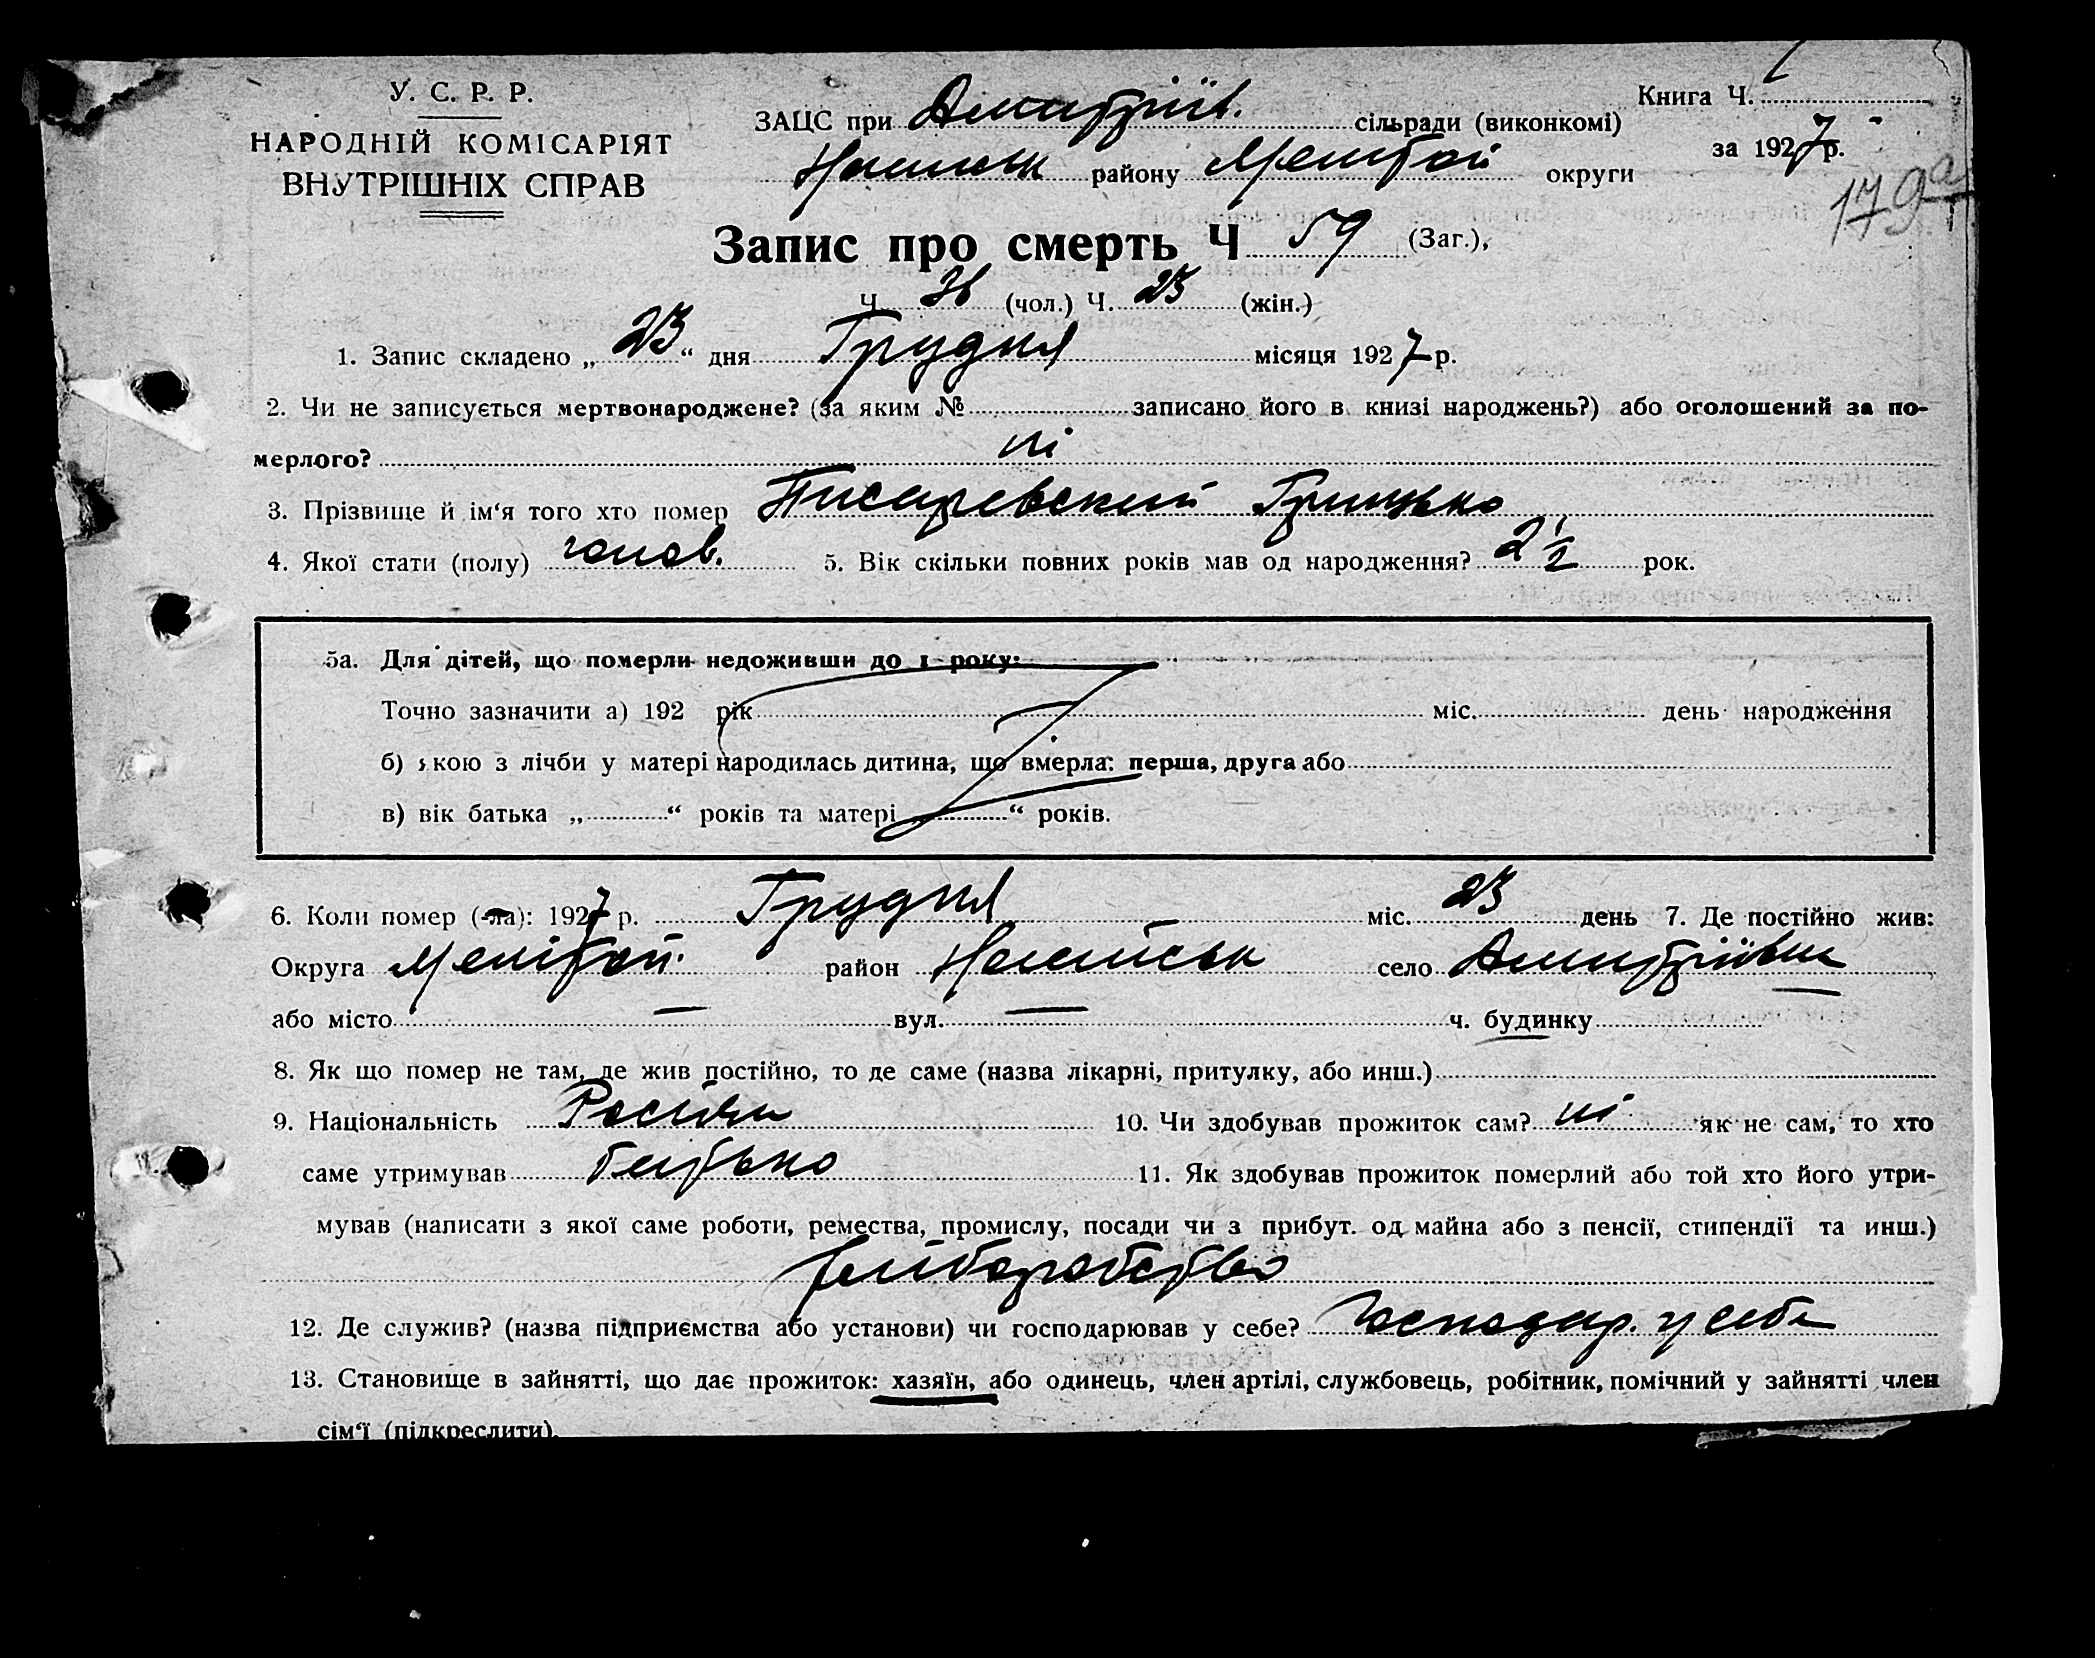 У. С. Р. Р.
НАРОДНІЙ КОМІСАРІЯТ
ВНУТРІШНІХ СПРАВ
ЗАЦС при Дмитріїв. сільради (виконкомі)
району Мелітоп округи
Книга Ч.
за 1927 р.
179а
Запис про смерть Ч 59 (Заг.),
Ч. 36 (чол.) Ч. 23 (жін.)
1. Запис складено „ 23 “ дня Грудня місяця 1927 р.
2. Чи не записується мертвонароджене? (за яким № записано його в книзі народжень?) або оголошений за по-
мерлого? ні
3. Прізвище й ім‘я того хто помер Писаревский Грицько
4. Якої стати (полу) чолов. 5. Вік скільки повних років мав од народження? 2 1/2 рок.
5а. Для дітей, що померли недоживши до 1 року:
Точно зазначити а) 192 рік міс. день народження
б) якою з лічби у матері народилась дитина, що вмерла: перша, друга або
в) вік батька „ “ років та матері „ “ років.
6. Коли помер (-ла): 1927 р. Грудня міс. 23 день 7. Де постійно жив:
Округа Мелітоп. район село Дмитріївки
або місто — вул. — ч. будинку
8. Як що помер не там, де жив постійно, то де саме (назва лікарні, притулку, або инш.)
9. Національність 10. Чи здобував прожиток сам? ні як не сам, то хто
саме утримував батько 11. Як здобував прожиток померлий або той хто його утри-
мував (написати з якої саме роботи, ремества, промислу, посади чи з прибут. од майна або з пенсії, стипендії та инш.)
хліборобство
12. Де служив? (назва підприємства або установи) чи господарював у себе? Господар. у себе
13. Становище в зайнятті, що дає прожиток: хазяїн, або одинець, член артілі, службовець, робітник, помічний у зайнятті член
сім‘ї (підкреслити)